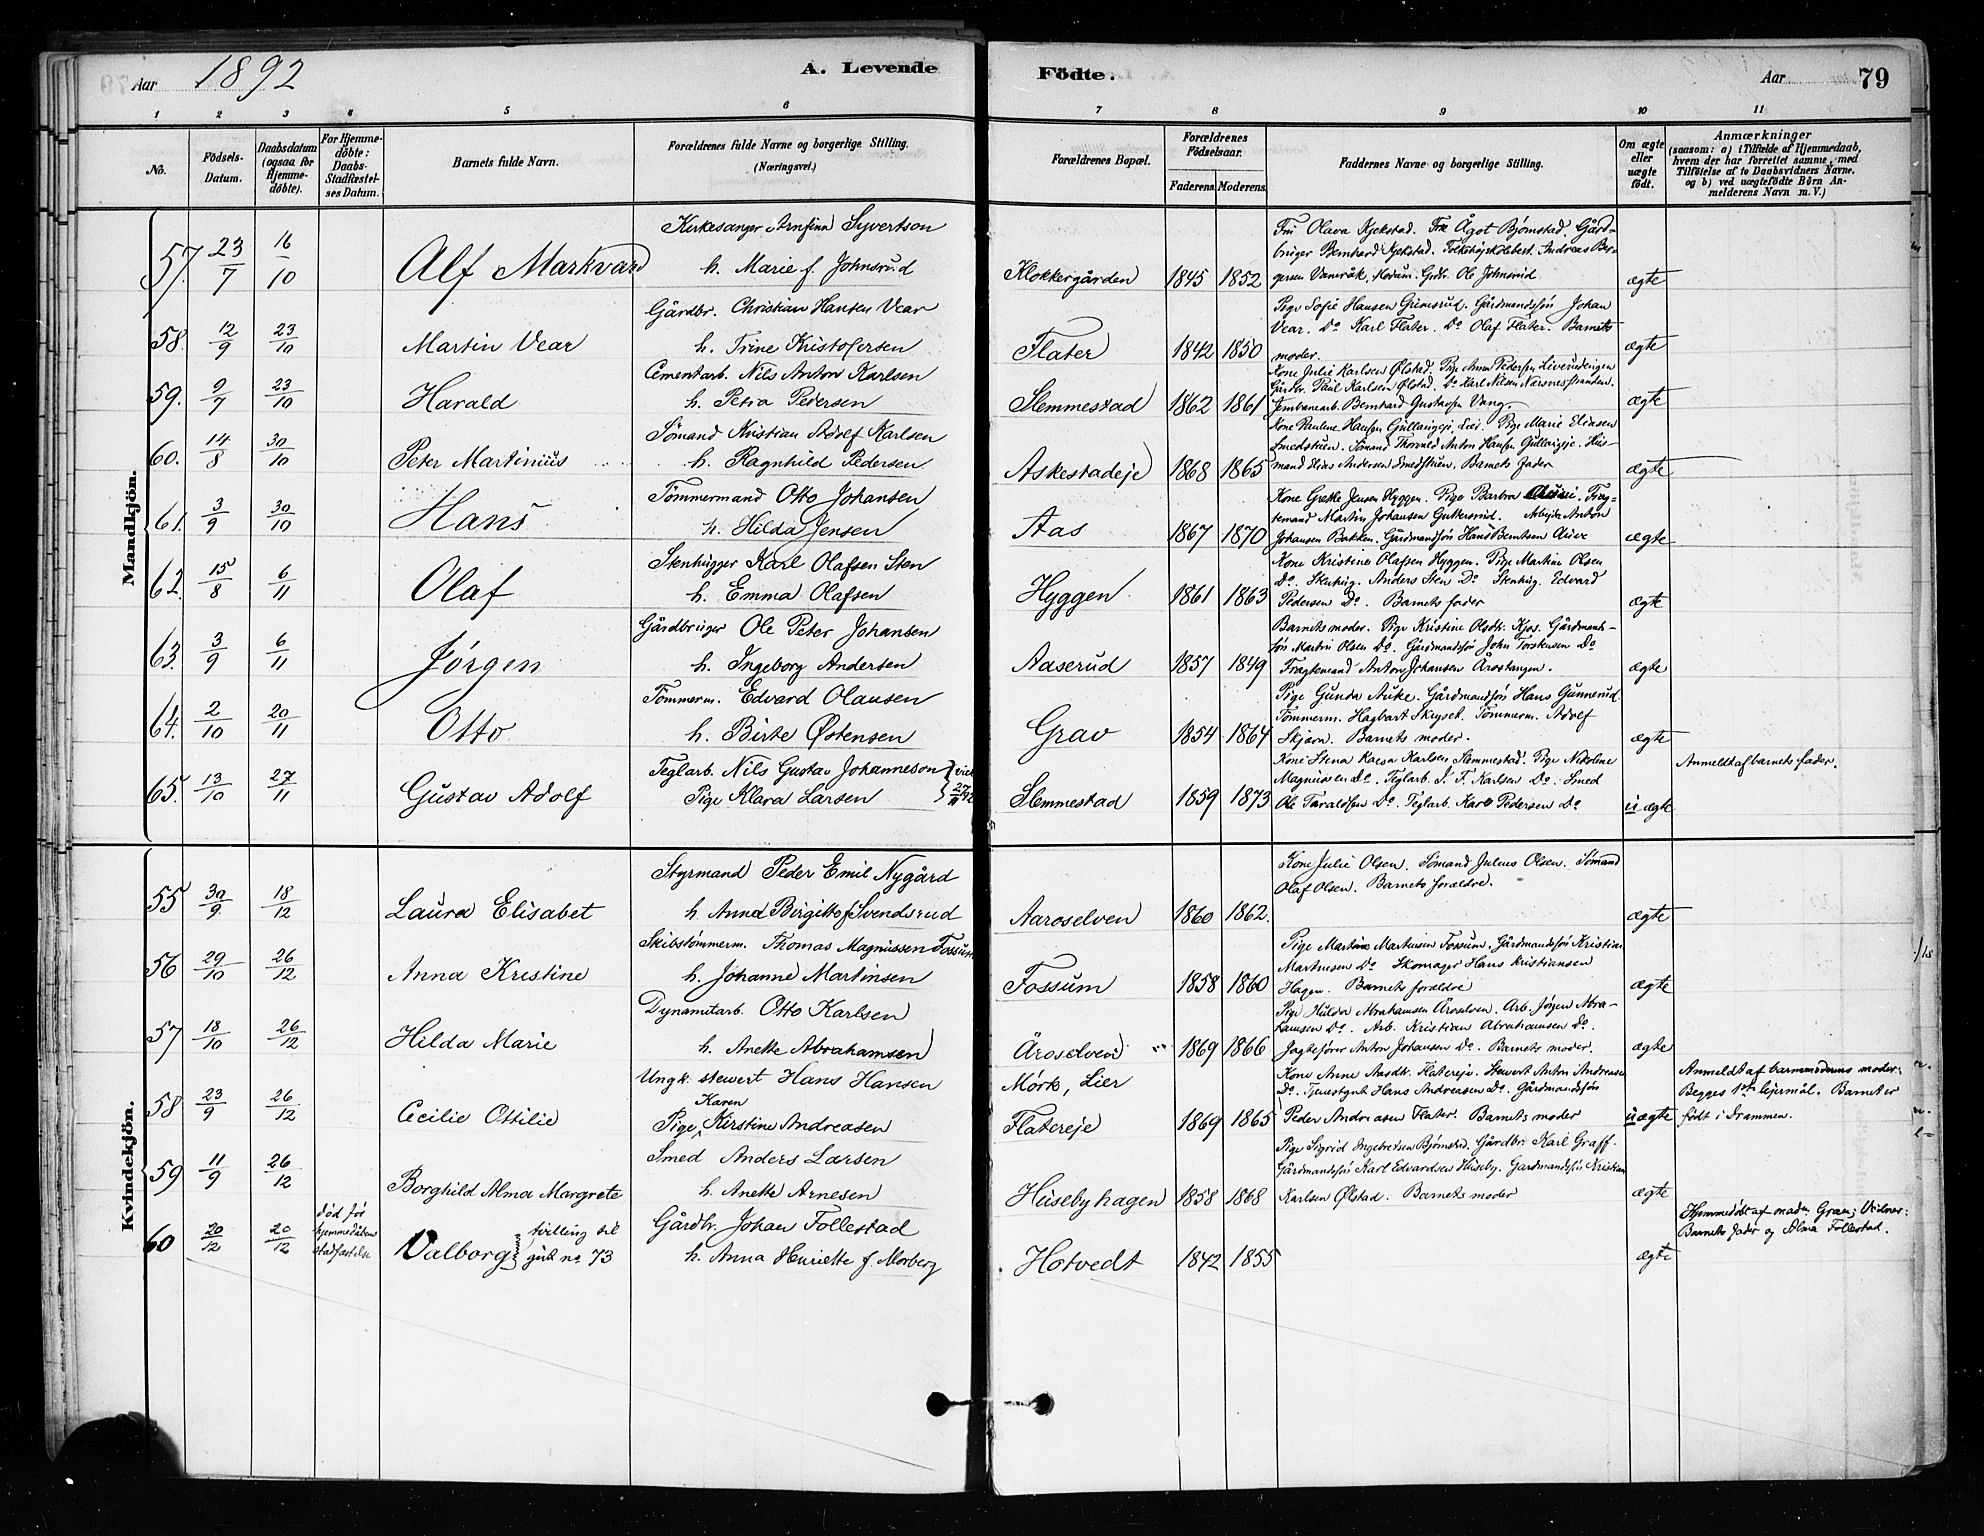 Aar 1892
A. Levende
Födte.
Aar
79
1 2 3 4 5 6 7 8 9 10 11
No.
Födsels-
Datum.
Daabsdatum
(ogsaa for
Hjemme-
döbte).
For Hjemme-
döbte:
Daabs
Stadfæstel-
ses Datum.
Barnets fulde Navn.
Forældrenes fulde Navne og borgerlige Stilling.
(Næringsvei.)
Forældrenes Bopæl.
Forældrenes
Födselsaar.
Faderens. Moderens.
Faddernes Navne og borgerlige Stilling.
Om ægte
eller
uægte
födt.
Anmærkninger
(saasom: a) i Tilfælde af Hjemmedaab,
hvem der har forrettet samme, med
Tilföielse af to Daabsvidners Navne.
og b) ved uægtefödte Börn An-
melderens Navn m. V.)
Mandkjön.
57. 23/7 16/10 Alf Markvard
Kirkesanger Arnfinn Syvertson
h. Marie f. Johnsrud
Klokkergården 1845 1852
Fru Olava Kjekstad. Frk Ågot Bjømstad. Gård-
bruger Bernhard Kjekstad. Folkehøjskolebest. Andreas Ber-
gersen Modum. Grdbr. Ole Johnsrud
ægte
58. 12/9 23/10 Martin Vear
Gårdbr. Christian Hansen Vear
h. Trine Kristofersen
Flater 1842 1850
Pige Sofie Hansen Grimsrud. Gårdmandssøn Johan
Vear. Do Karl Flater. Do Olaf Flater. Barnets
moder.
ægte
59. 9/7 23/10 Harald
Cementarb. Nils Anton Karlsen
h. Petra Pedersen
Slemmestad 1862 1861
Kone Julie Karlsen Ølstad. Pige Anna Pedersen Liverudengen
Gårdbr. Paul Karlsen Ølstad. Do Karl Nilsen Nærsnesstranden.
Jernbanearb. Bernhard Gustavsen Vang.
ægte
60. 14/8 30/10 Peter Martinius
Sømand Kristian Adolf Karlsen
h. Ragnhild Pedersen
Askestadeje 1868 1865
Kone Pauline Hansen Gullaugeje, Lier. Pige Marie Eliasen
Smedstuen. Sømand Thorvald Anton Hansen Gullaugeje. Hus-
mand Elias Andersen Smedstuen. Barnets fader
ægte
61. 3/9 30/10 Hans
Tømmermand Otto Johansen
h. Hilda Jensen
Aas 1867 1870
Kone Grethe Jensen Hyggen. Pige Barbra Frag-
temand Martin Johansen Guttersrud. Arbejder Anton
Johansen Bakken. Gårdmandssøn Hans Berntsen
ægte
62. 15/8 6/11 Olaf
Stenhugger Karl Olafsen Sten
h. Emma Olafsen
Hyggen 1861 1863
Kone Kristine Olafsen Hyggen. Pige Martine Olsen
Do. Stenhug. Anders Sten Do Stenhug. Edvard
Pedersen Do. Barnets fader
ægte
63. 3/9 6/11 Jørgen
Gårdbruger Ole Peter Johansen
h. Ingeborg Andersen
Aaserud 1857 1849
Barnets moder. Pige Kristine Olsdtr. Kjos. Gårdmands-
søn Martin Olsen Do. Gårdmandssøn John Torstensen Do
Fragtemand Anton Johansen Årostangen.
ægte
64. 2/10 20/11 Otto
Tømmerm. Edvard Olausen
h. Birte Østensen
Grav 1854 1864
Pige Gunda Auke. Gårdmandssøn Hans Gunnerud
Tømmerm. Hagbart Skryset. Tømmerm. Adolf
Skjærn. Barnets moder.
ægte
65. 13/10 27/11 Gustav Adolf
Teglarb. Nils Gustav Johanneson } viet
Pige Klara Larsen } 27/11 92
Slemmestad 1859 1873
Kone Stena Kaesa Karlsen Slemmestad. Pige Nikoline
Magnussen Do. Teglarb. S. F. Karlsen Do. Smed
Ole Taraldsen Do. Teglarb. Karl Pedersen Do
uægte
Anmeldt af barnets fader.
Kvindekjön.
55 30/9 18/12 Laura Elisabet
Styrmand Peder Emil Nygård
h. Anna Birgitte f Svendsrud
Aaroselven 1860 1862.
Kone Julie Olsen. Sømand Julius Olsen. Sømand
Olaf Olsen. Barnets forældre.
ægte
56 29/10 26/12 Anna Kristine
Skibstømmerm. Thomas Magnussen Fossum
h. Johanne Martinsen
Fossum 1858 1860
Pige Martine Martinsen Fossum. Gårdmandssøn Kristian
Martinsen Do Skomager Hans Kristiansen
Hagen. Barnets forældre
ægte
57 18/10 26/12 Hilda Marie
Dynamitarb. Otto Karlsen
h. Anette Abrahamsen
Åroselven 1869 1866
Pige Hilda Abrahamsen Åroselven. Arb. Jørgen Abra-
hamsen Do. Arb. Kristian Abrahamsen Do.
Jagtefører Anton Johansen Do. Barnets moder.
ægte
58 23/9 26/12 Cecilie Ottilie
Ungk. stewert Hans Hansen
Karen
Pige Kirstine Andreasen
Mørk, Lier
Flatereje 1869 1865
Kone Anne Aasdtr. Flatereje. Stewert Anton Andreasen
Do. Tjenestgut Hans Andreasen Do. Gårdmandssøn
Peder Andreasen Flater. Barnets moder
uægte
Anmeldt af barnemoderens moder.
Begges 1ste lejermål. Barnet er
født i Drammen.
59 11/9 26/12 Borghild Alma Margrete
Smed Anders Larsen
h. Anette Arnesen
Husebyhagen 1858 1868
Pige Sigrid Ingebretsen Bjømstad. Gårdbr. Karl Graff.
Gårdmandssøn Karl Edvardsen Huseby. Gårdmandssøn Kristian
Karlsen Ølstad. Barnets moder
ægte
60 20/12 20/12
død før
hjemmedåbens
stadfæstelse
Valborg tvilling til
gut no 73
Gårdbr. Johan Follestad
h. Anna Henriette f. Morberg
Hotvedt 1842 1855
ægte
Hjemmedøbt af maden Gran; Vidner:
Barnets fader og Alma Follestad.